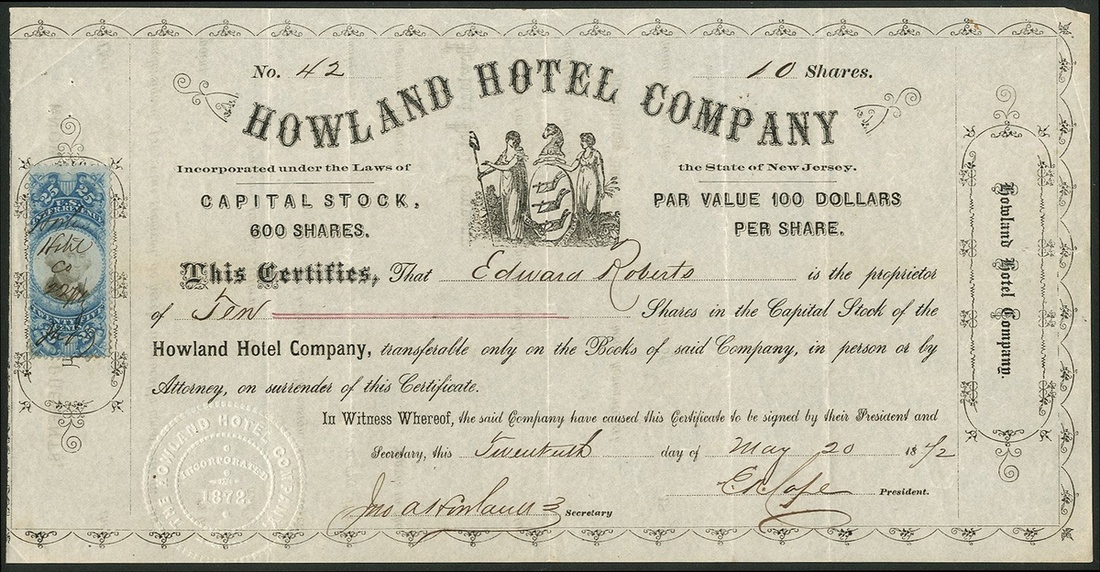 No. 42
10 Shares.
HOWLAND HOTEL COMPANY
Incorporated under the Laws of
the State of New Jersey.
CAPITAL STOCK,
600 SHARES.
PAR VALUE 100 DOLLARS
PER SHARE.
This Certifies, That Edward Roberts is the proprietor
of Ten Shares in the Capital Stock of the
Howland Hotel Company, transferable only on the Books of said Company, in person or by
Attorney, on surrender of this Certificate.
In Witness Whereof, the said Company have caused this Certificate to be signed by their President and
Secretary, this Twentieth day of May 20 1872
President.
Jno A Howland Secretary
THE HOWLAND HOTEL COMPANY
INCORPORATED
1872
25 25
U.S.
INTER. REVENUE
Hotel
Co
Howland Hotel Company.